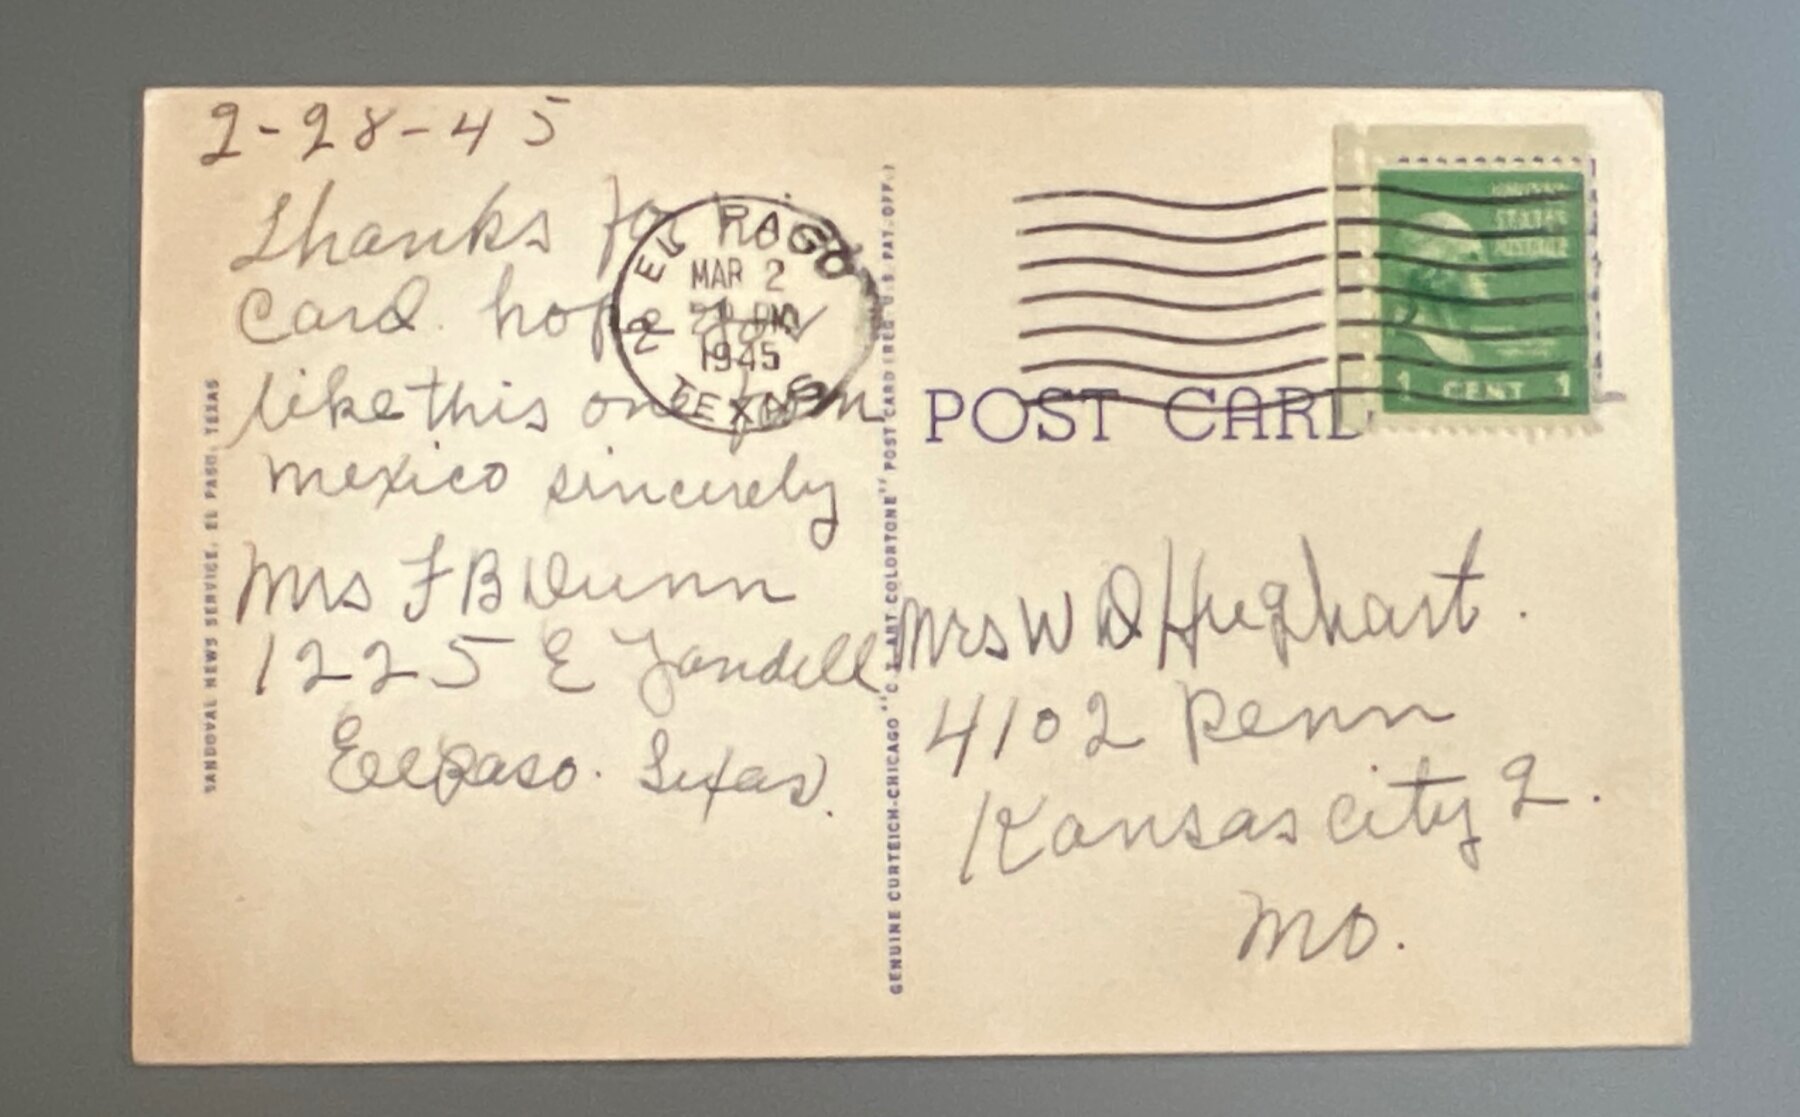 2-28-45
Thanks for
card. hope you
like this one from
mexico sincerely
Mrs F B Dunn
1225 E Yandell
El Paso. Texas.
EL PASO
MAR 2
PM
1945
TEXAS
SANDOVAL NEWS SERVICE, EL PASO, TEXAS
GENUINE CURTEICH-CHICAGO "C.T. ART-COLORTONE" POST CARD (REG. U.S. PAT. OFF.)
UNITED
STATES
POSTAGE
1 CENT 1
POST CARD
Mrs W D Hughart.
4102 Penn
Kansas City 2.
Mo.